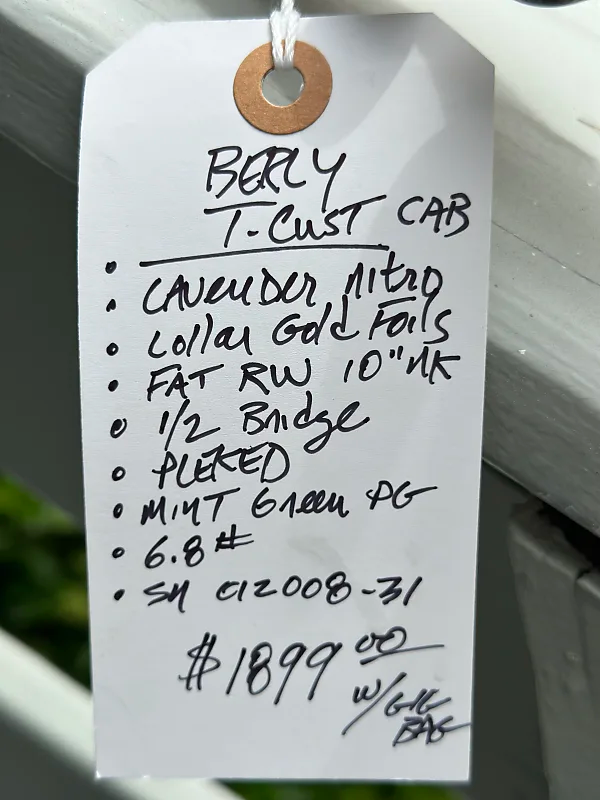 BERLY
T-CUST CAB
• LAVENDER NITRO
• Lollar Gold Foils
• FAT RW 10" NK
• 1/2 Bridge
• PLEKED
• MINT Green PG
• 6.8#
• SN 012008-31
$1899 00
W/GIG
BAG